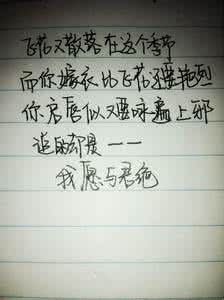 飞花又散落在这个季节
而你嫁衣比飞花还要艳烈
你启唇似又要咏遍上邪
追的却是——
我愿与君绝